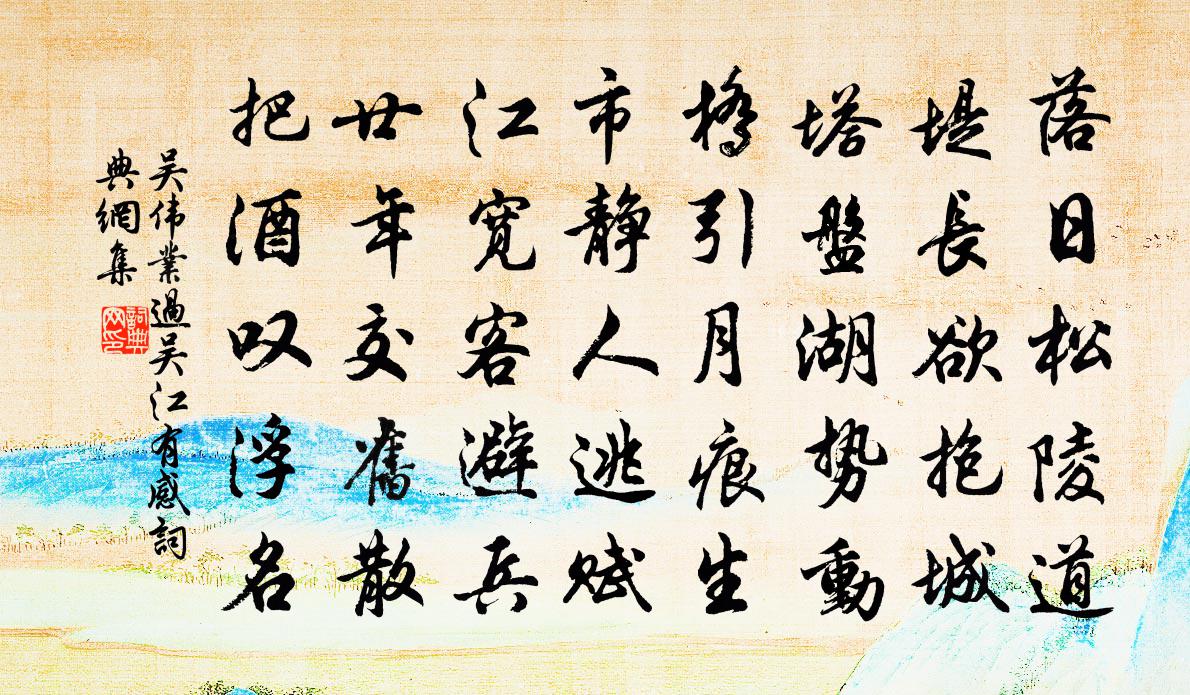 落日松陵道
堤長欲抱城
塔盤湖势動
橋引月痕生
市静人逃赋
江宽客避兵
廿年交舊散
把酒叹浮名
吴伟業過吴江有感詞
典網集
詞典
网印